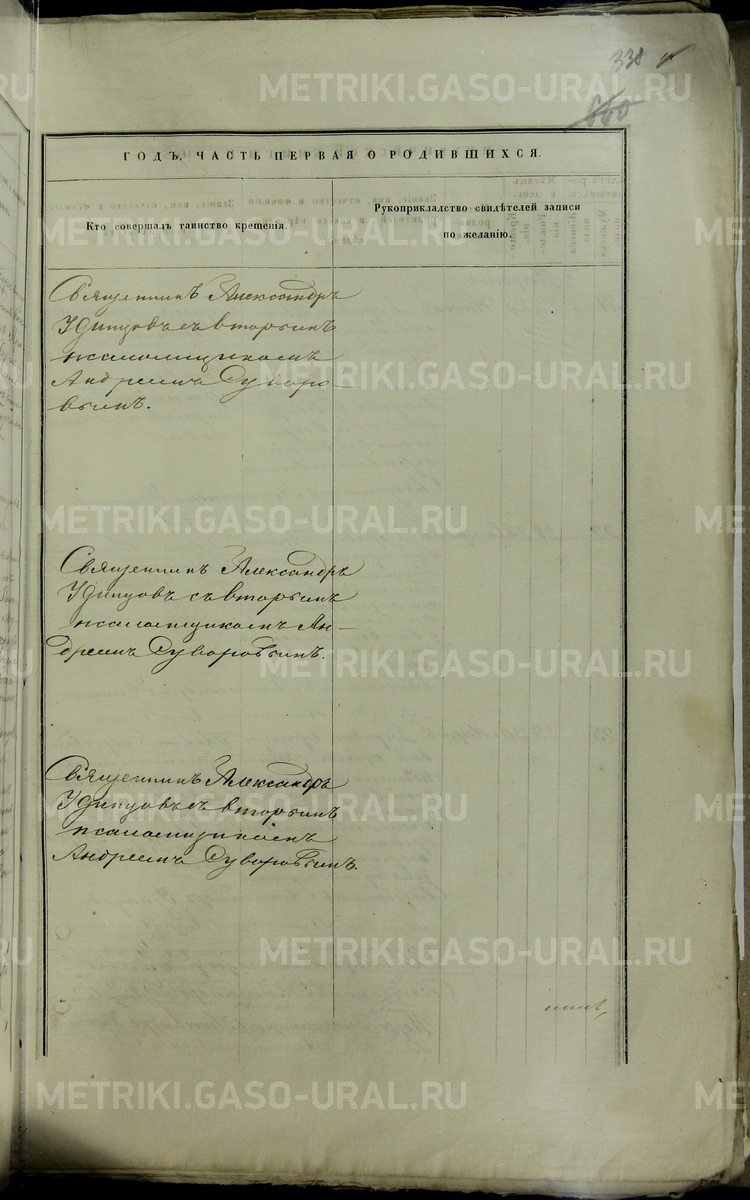 338
660
ГОДЪ, ЧАСТЬ ПЕРВАЯ О РОДИВШИХСЯ.
Кто совершалъ таинство крещенія.
Рукоприкладство свидѣтелей записи
по желанію.
Священникъ Александръ
Удинцовъ съ вторымъ
псаломщикомъ
Андреемъ Суворо-
вымъ.
Священникъ Александръ
Удинцовъ съ вторымъ
псаломщикомъ Ан-
дреемъ Суворовымъ.
Священникъ Александръ
Удинцовъ съ вторымъ
псаломщикомъ
Андреемъ Суворовымъ.
METRIKI.GASO-URAL.RU
METRIKI.GASO-URAL.RU
METRIKI.GASO-URAL.RU
METRIKI.GASO-URAL.RU
METRIKI.GASO-URAL.RU
METRIKI.GASO-URAL.RU
METRIKI.GASO-URAL.RU
METRIKI.GASO-URAL.RU